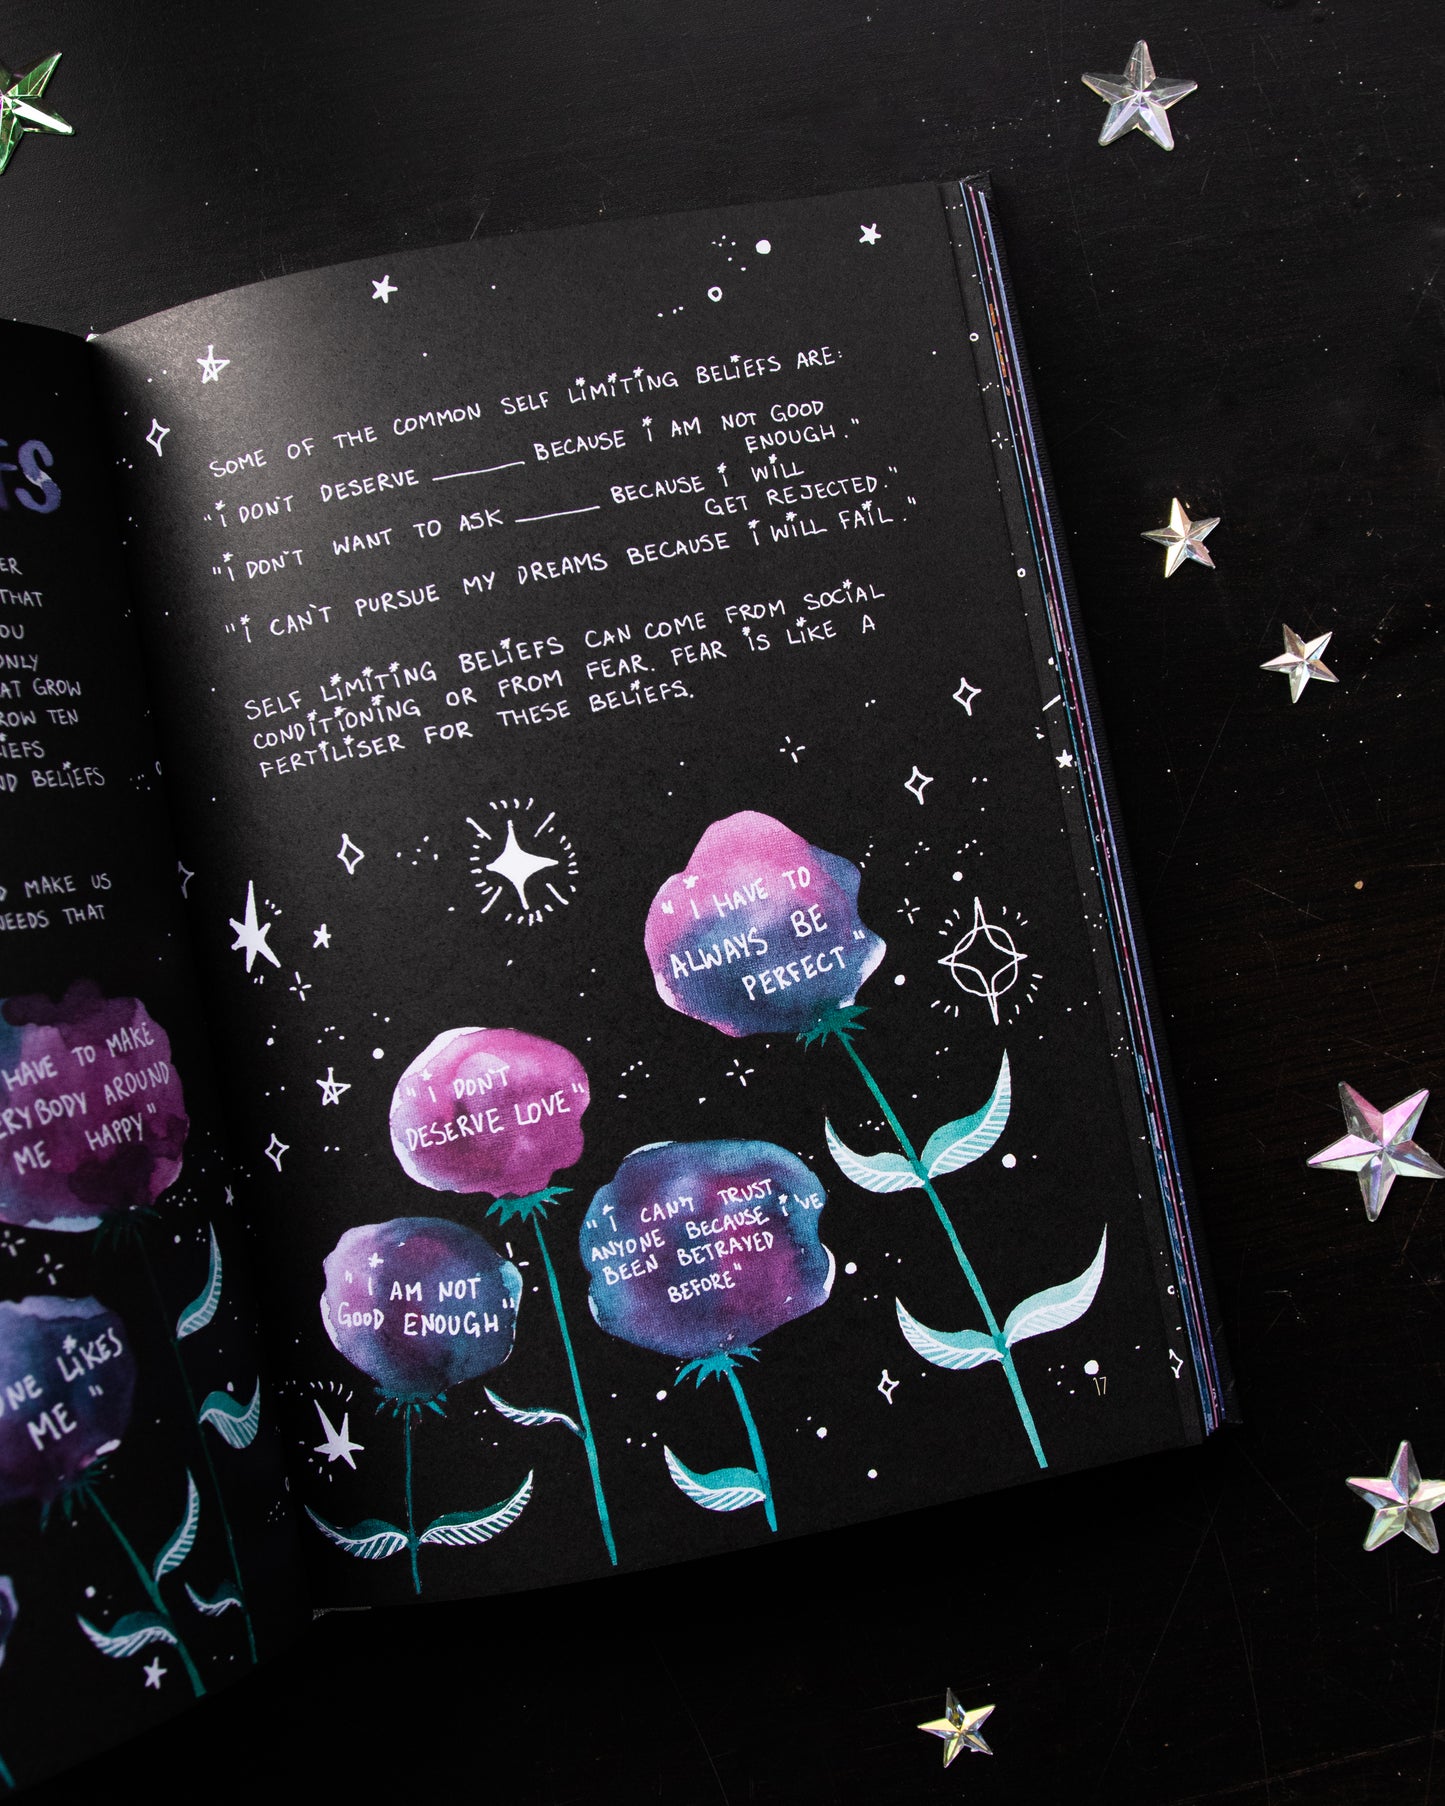 FS
ER
THAT
OU
ONLY
AT GROW
ROW TEN
IEFS
ND BELIEFS
MAKE US
NEEDS THAT
HAVE TO MAKE
ERYBODY AROUND
ME HAPPY"
ONE LIKES
ME "
SOME OF THE COMMON SELF LIMITING BELIEFS ARE:
"I DON'T DESERVE ______ BECAUSE I AM NOT GOOD
ENOUGH."
"I DON'T WANT TO ASK ______ BECAUSE I WILL
GET REJECTED."
"I CAN'T PURSUE MY DREAMS BECAUSE I WILL FAIL."
SELF LIMITING BELIEFS CAN COME FROM SOCIAL
CONDITIONING OR FROM FEAR. FEAR IS LIKE A
FERTILISER FOR THESE BELIEFS.
"I HAVE TO
ALWAYS BE
PERFECT"
"I DON'T
DESERVE LOVE"
"I CAN'T TRUST
ANYONE BECAUSE I'VE
BEEN BETRAYED
BEFORE"
"I AM NOT
GOOD ENOUGH"
17